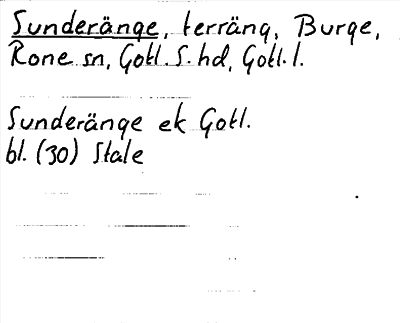 Sunderänge, terräng, Burge,
Rone sn, Gotl. S. hd, Gotl. l.
Sunderänge ek Gotl.
bl. (30) Stale